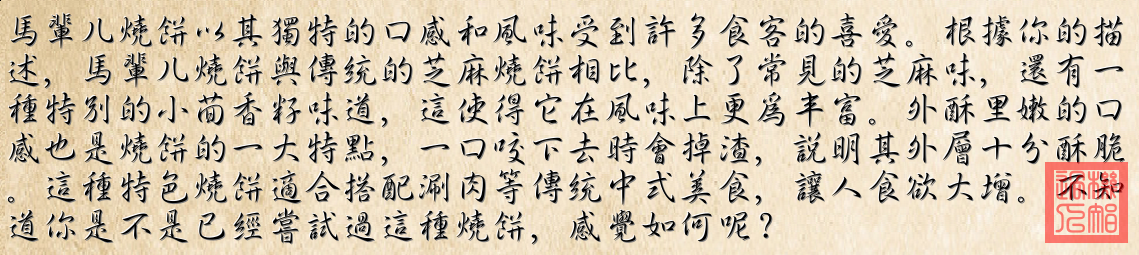 馬輩儿燒餅以其獨特的口感和風味受到許多食客的喜愛。根據你的描
述，馬輩儿燒餅與傳統的芝麻燒餅相比，除了常見的芝麻味，還有一
種特別的小茴香籽味道，這使得它在風味上更為丰富。外酥里嫩的口
感也是燒餅的一大特點，一口咬下去時會掉渣，説明其外層十分酥脆
。這種特色燒餅適合搭配涮肉等傳統中式美食，讓人食欲大增。不知
道你是不是已經嘗試過這種燒餅，感覺如何呢？